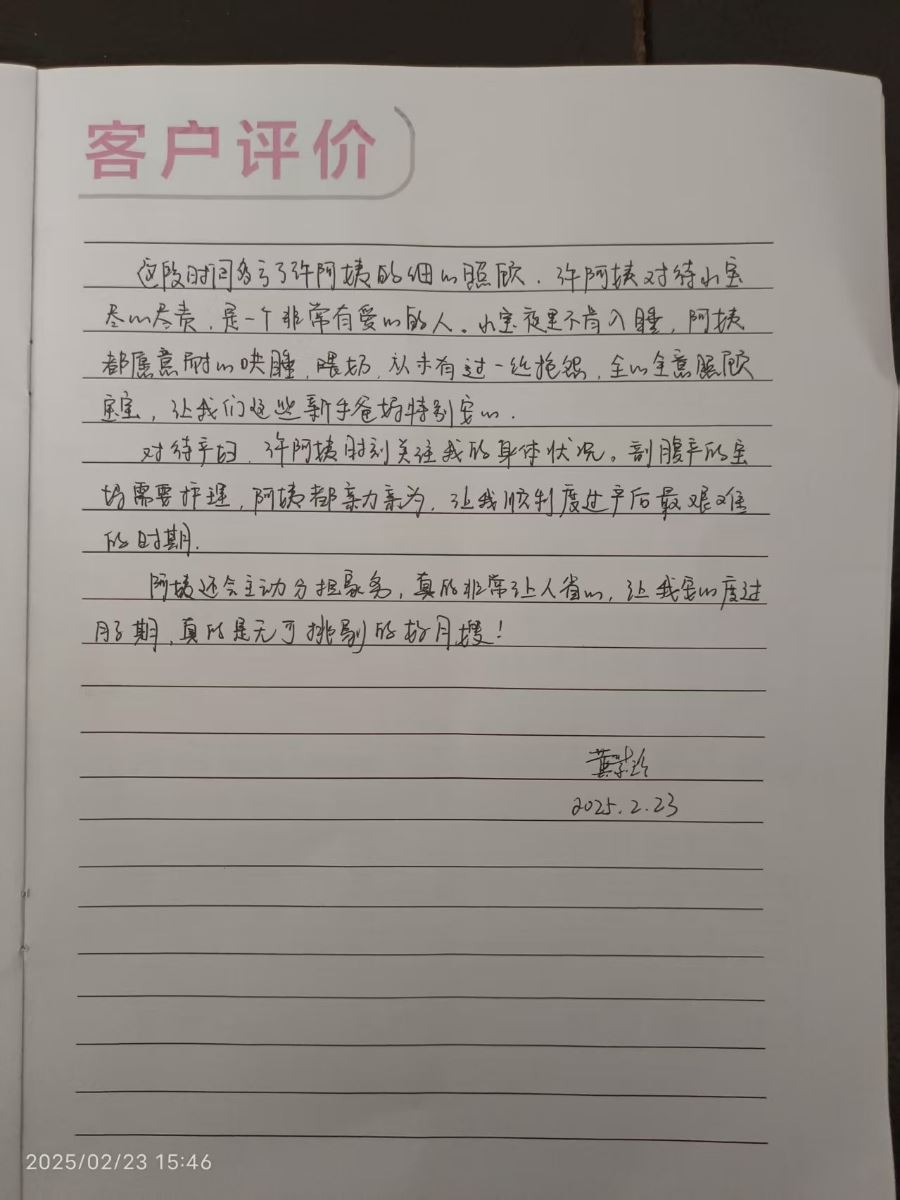 客户评价
这段时间多亏了许阿姨的细心照顾，许阿姨对待小宝
尽心尽责，是一个非常有爱心的人。小宝夜里不肯入睡，阿姨
都愿意耐心哄睡，喂奶，从未有过一丝抱怨，全心全意照顾
宝宝，让我们这些新手爸妈特别安心．
对待产妇，许阿姨时刻关注我的身体状况。剖腹产的宝
妈需要护理，阿姨都亲力亲为，让我顺利度过产后最艰难
的时期．
阿姨还会主动分担家务，真的非常让人省心，让我安心度过
月子期，真的是无可挑剔的好月嫂！
2025.2.23
2025/02/23 15:46